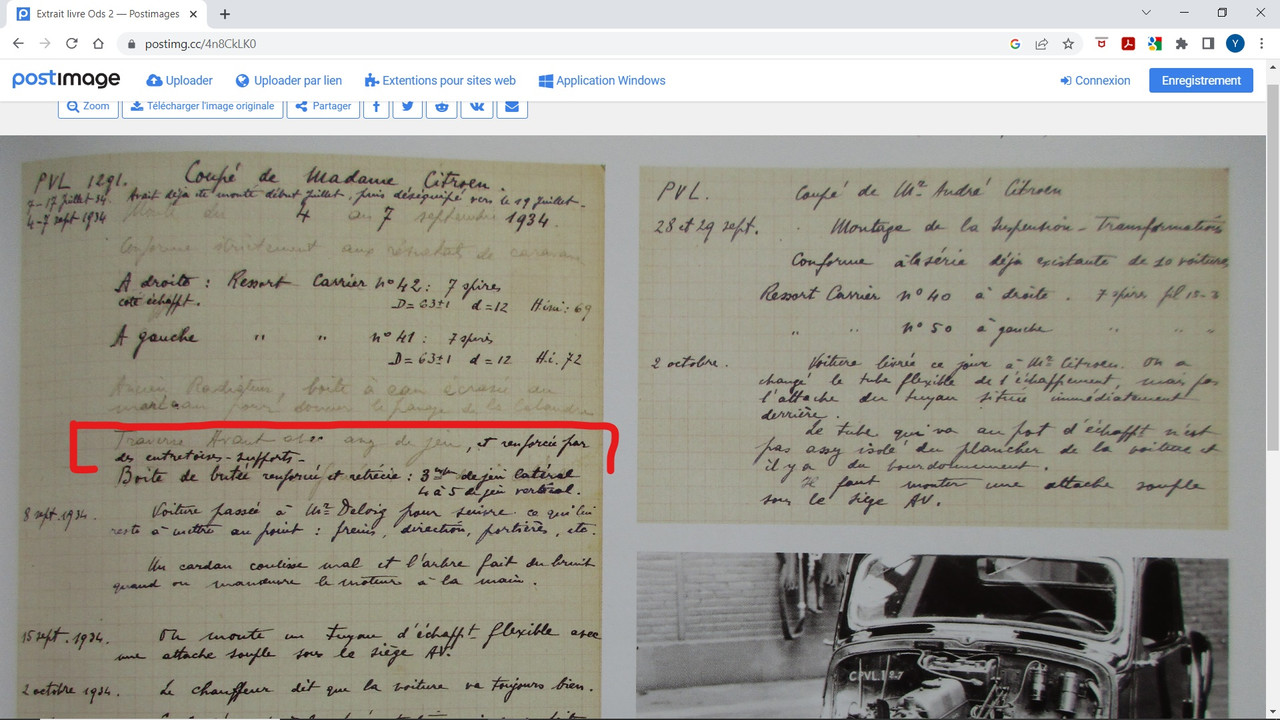 Extrait livre Ods 2 — Postimages
postimg.cc/4n8CkLK0
Y
postimage
Uploader
Uploader par lien
Extentions pour sites web
Application Windows
Connexion
Enregistrement
Zoom
Télécharger l'image originale
Partager
PVL 1291. Coupé de Madame Citroen.
7-17 Juillet 34. Avait déja été monté début Juillet, puis déséquipé vers le 19 Juillet.
4-7 sept 1934 Monté du 4 au 7 septembre 1934.
Conforme strictement aux résultats de
A droite : Ressort Carrier n° 42 : 7 spires
coté échappt. D=63±1 d=12 H ini: 69
A gauche " " n° 41 : 7 spires
D=63±1 d=12 H.i. 72
Ancien Radiateur, boite à eau écrasée au
marteau pour donner le de la Calandre
Traverse Avant avec de jeu, et renforcée par
des entretoises-supports.
Boite de butée renforcée et retrécie : 3 de jeu latéral
4 à 5 de jeu vertical.
8 sept. 1934. Voiture passée à Mr pour suivre ce qu'il
reste à mettre au point : freins, direction, portières, etc.
Un cardan coulisse mal et l'arbre fait du bruit
quand on manœuvre le moteur à la main.
15 sept. 1934. On monte un tuyau d'échappt flexible avec
une attache souple sous le siège AV.
2 octobre 1934. Le chauffeur dit que la voiture va toujours bien.
PVL. Coupé de Mr André Citroën
28 et 29 sept. Montage de la suspension - Transformations
Conforme à la série déja existante de 10 voitures
Ressort Carrier n° 40 à droite. 7 spires
" " n° 50 à gauche " "
2 octobre. Voiture livrée ce jour à Mr Citroen. On a
changé le tube flexible de l'échappement, mais pas
l'attache du tuyau située immédiatement
derrière.
Le tube qui va au pot d'échappt n'est
pas assez isolé du plancher de la voiture et
il y a du bourdonnement.
Il faut monter une attache souple
sous le siège AV.